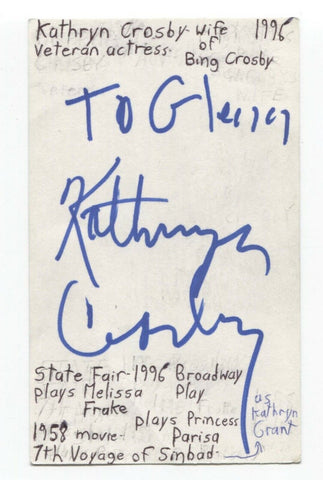 Kathryn Crosby-wife 1996
veteran actress- of
Bing Crosby
To Glenn
Kathryn
Crosby
State Fair-1996 Broadway
plays Melissa Play
Frake
plays Princess
1958 movie- Parisa
7th Voyage of Sinbad-
as
Kathryn
Grant